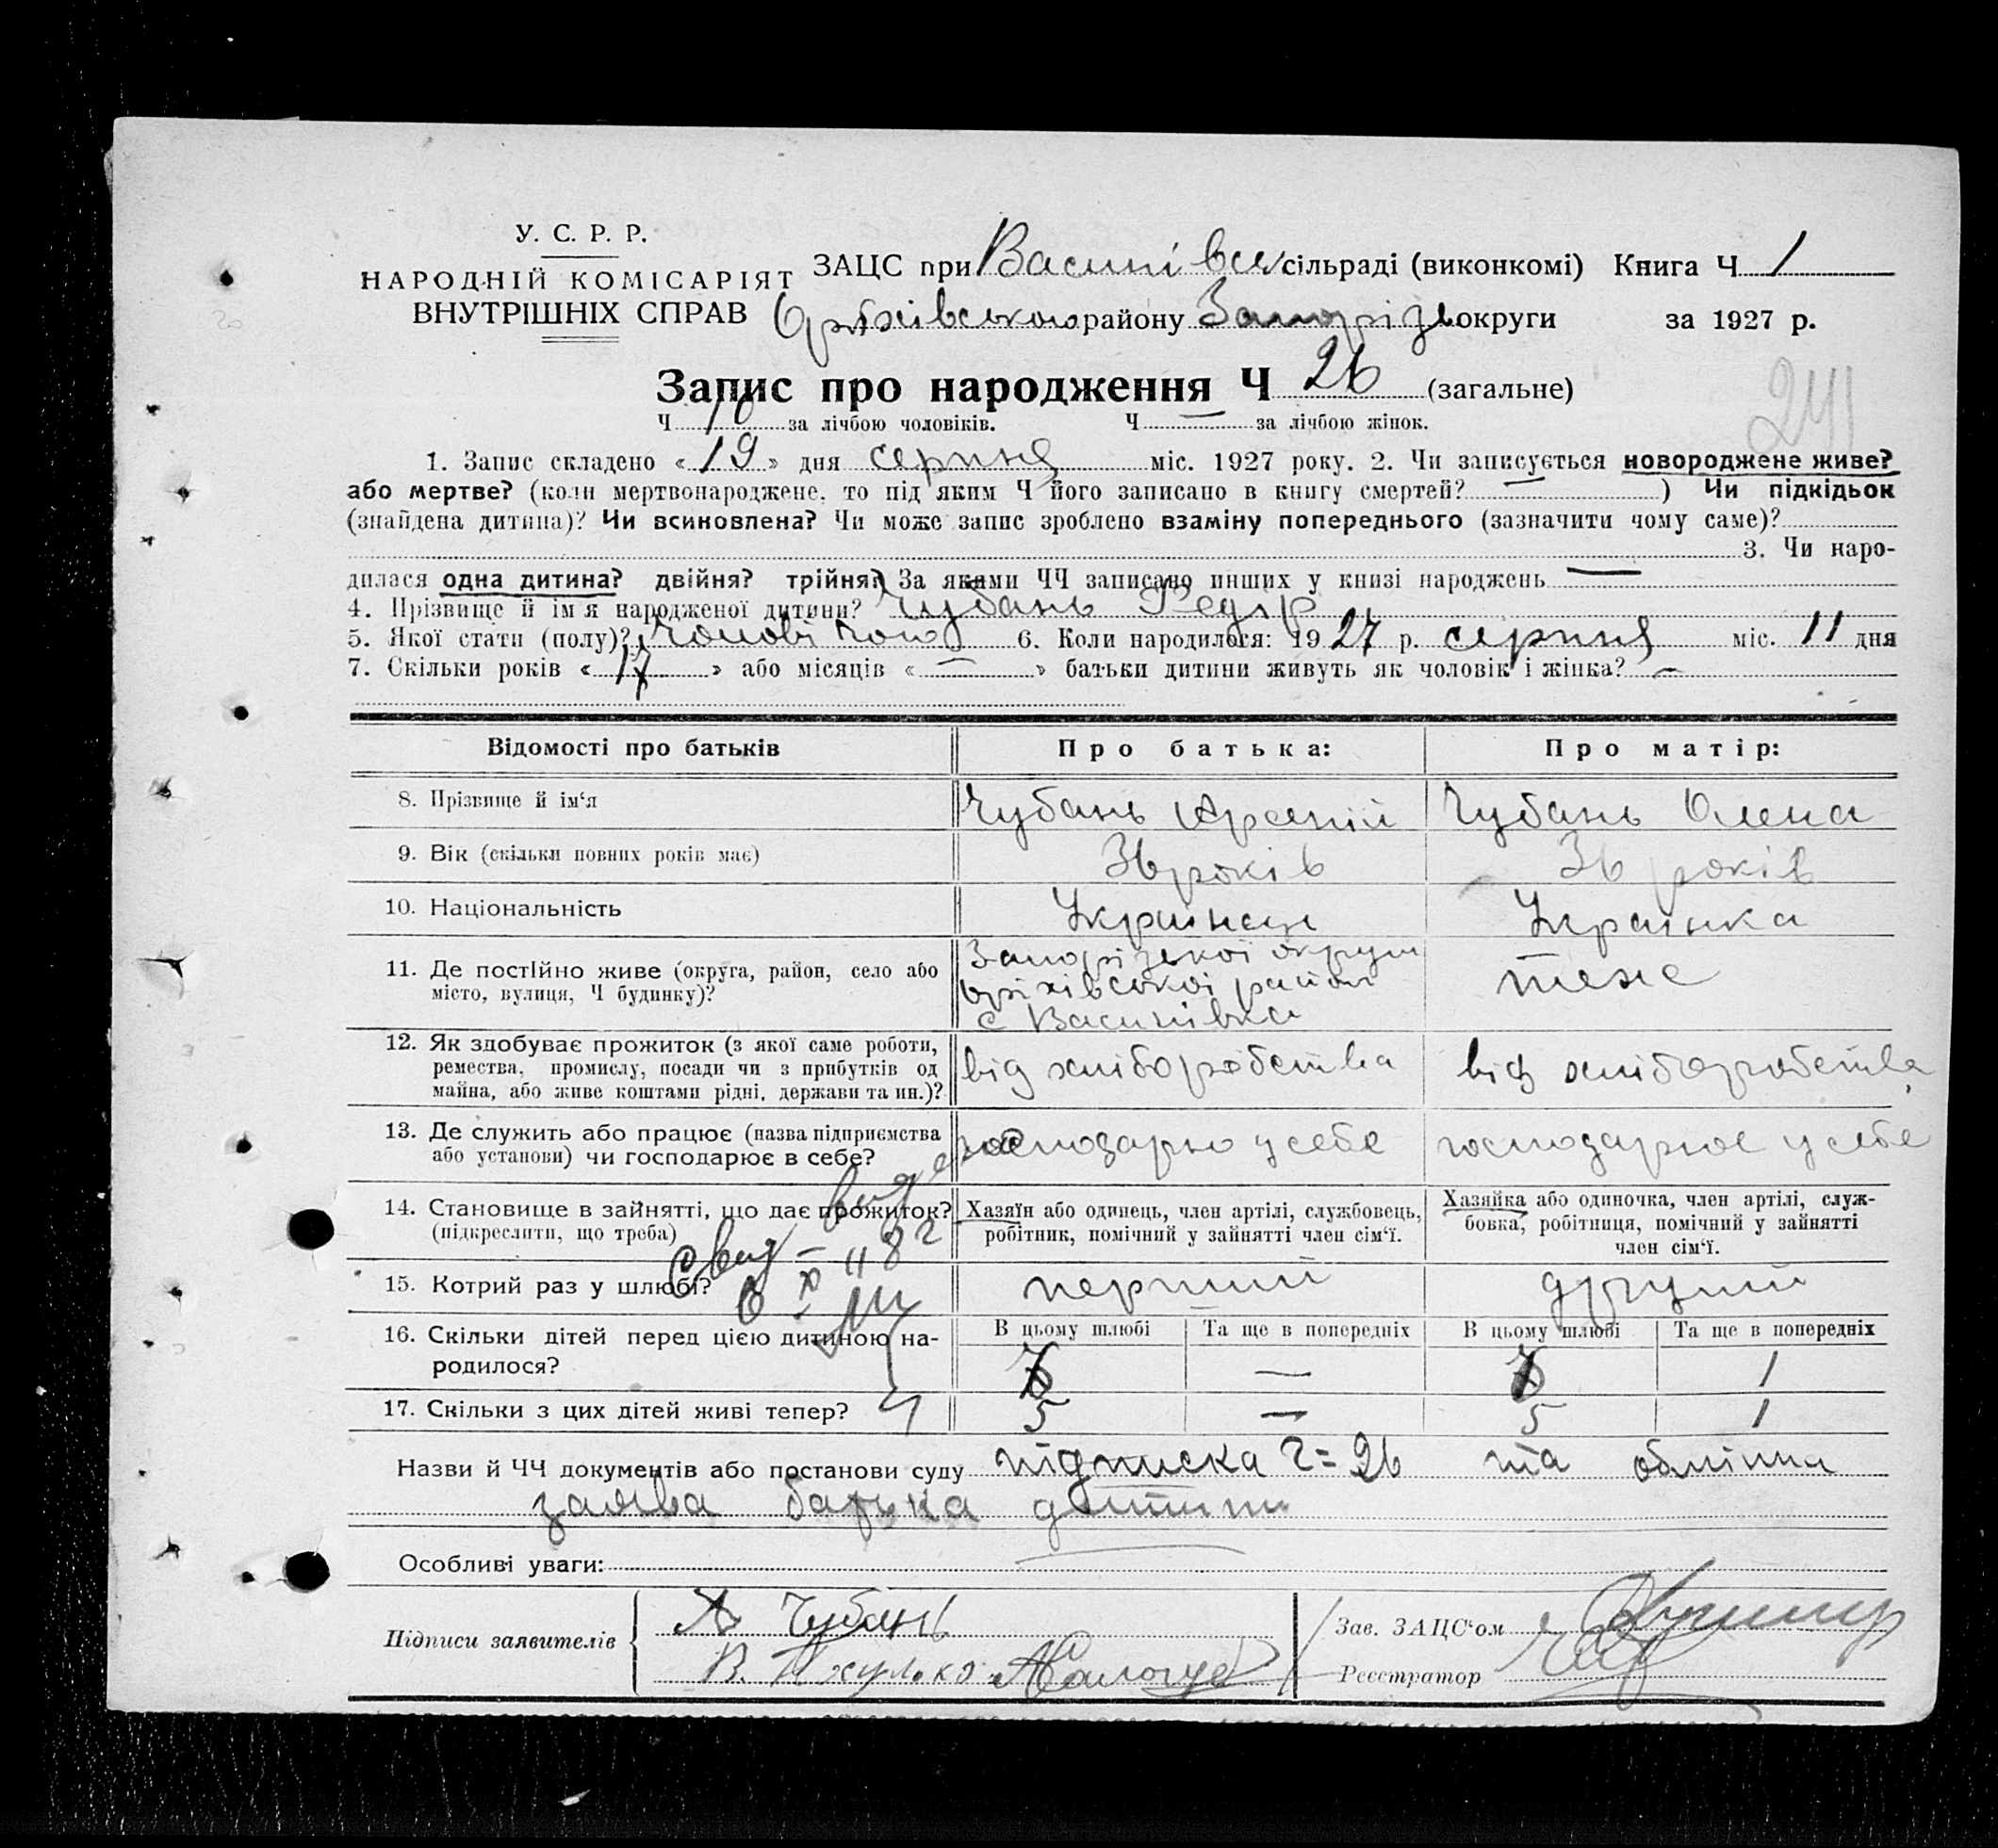 У. С. Р. Р.
НАРОДНІЙ КОМІСАРІЯТ
ВНУТРІШНІХ СПРАВ
ЗАЦС при Василівск сільраді (виконкомі) Книга Ч 1
Оріхівського району Запорізьк округи за 1927 р.
Запис про народження Ч 26 (загальне)
Ч 10 за лічбою чоловіків. Ч — за лічбою жінок.
241
1. Запис складено «19» дня серпня міс. 1927 року. 2. Чи записується новороджене живе?
або мертве? (коли мертвонароджене, то під яким Ч його записано в книгу смертей? — ) Чи підкідьок
(знайдена дитина)? Чи всиновлена? Чи може запис зроблено взаміну попереднього (зазначити чому саме)?
3. Чи наро-
дилася одна дитина? двійня? трійня? За якими ЧЧ записано инших у книзі народжень —
4. Прізвище й ім'я народженої дитини? Чубань Федір
5. Якої стати (полу)? чоловічого 6. Коли народилося: 1927 р. серпня міс. 11 дня
7. Скільки років «17» або місяців «—» батьки дитини живуть як чоловік і жінка? —
Відомості про батьків Про батька: Про матір:
8. Прізвище й ім'я Чубань Арсеній Чубань Олена
9. Вік (скільки повних років має) 36 років 36 років
10. Національність Українец Українка
11. Де постійно живе (округа, район, село або місто, вулиця, Ч будинку)?
Запорізької округи
Оріхівської район
с Василівка
теже
12. Як здобуває прожиток (з якої саме роботи,
ремества, промислу, посади чи з прибутків од
майна, або живе коштами рідні, держави та ин.)?
від хліборобства від хліборобства
13. Де служить або працює (назва підприємства
або установи) чи господарює в себе?
господарю у себе господарює у себе
14. Становище в зайнятті, що дає прожиток?
(підкреслити, що треба)
Хазяїн або одинець, член артілі, службовець,
робітник, помічний у зайнятті член сім'ї.
Хазяйка або одиночка, член артілі, служ-
бовка, робітниця, помічний у зайнятті
член сім'ї.
15. Котрий раз у шлюбі? перший другий
16. Скільки дітей перед цією дитиною на-
родилося?
В цьому шлюбі Та ще в попередніх В цьому шлюбі Та ще в попередніх
— 1
17. Скільки з цих дітей живі тепер? 5 — 5 1
Назви й ЧЧ документів або постанови суду підписка Ч=26 та
заява батька дитини
Особливі уваги:
Підписи заявителів
А Чубань
Зав. ЗАЦС'ом
Реєстратор